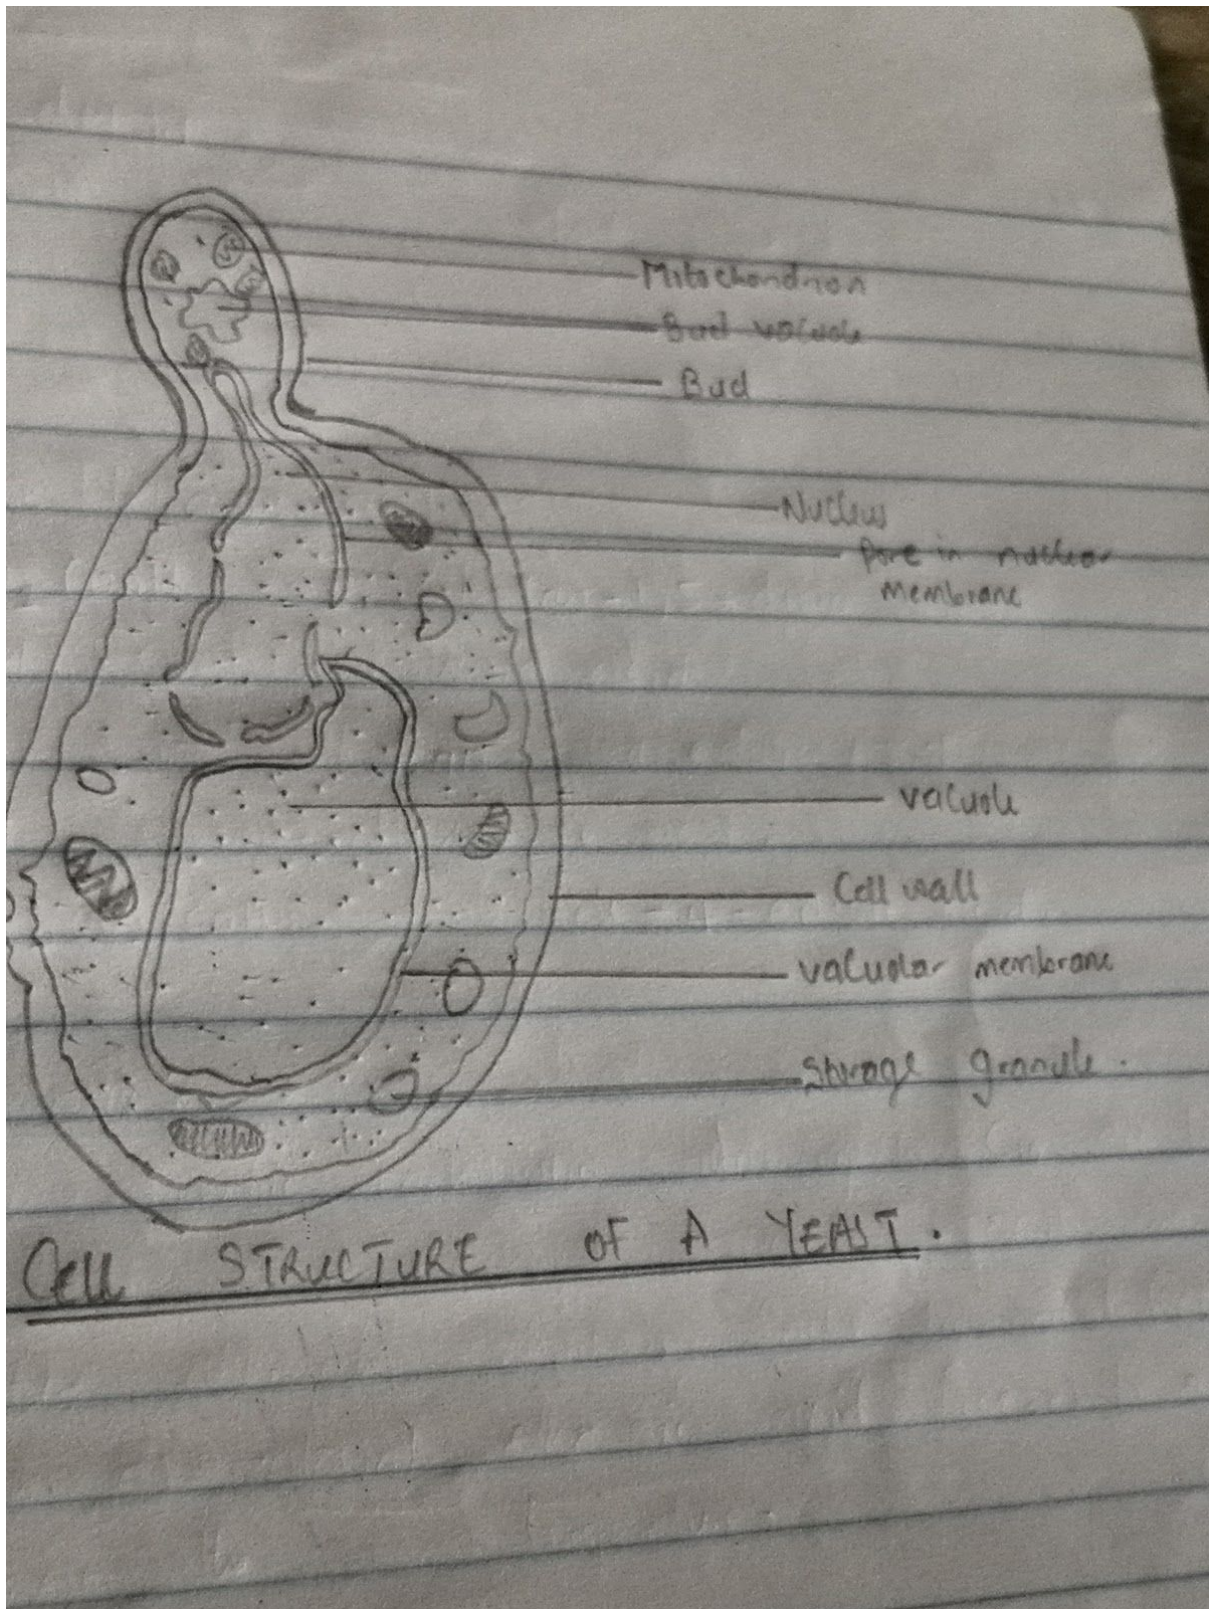 Mitochondrion
Bud vacuole
Bud
Nucleus
Pore in nuclear
membrane
vacuole
Cell wall
vacuolar membrane
Storage granule.
Cell STRUCTURE OF A YEAST.